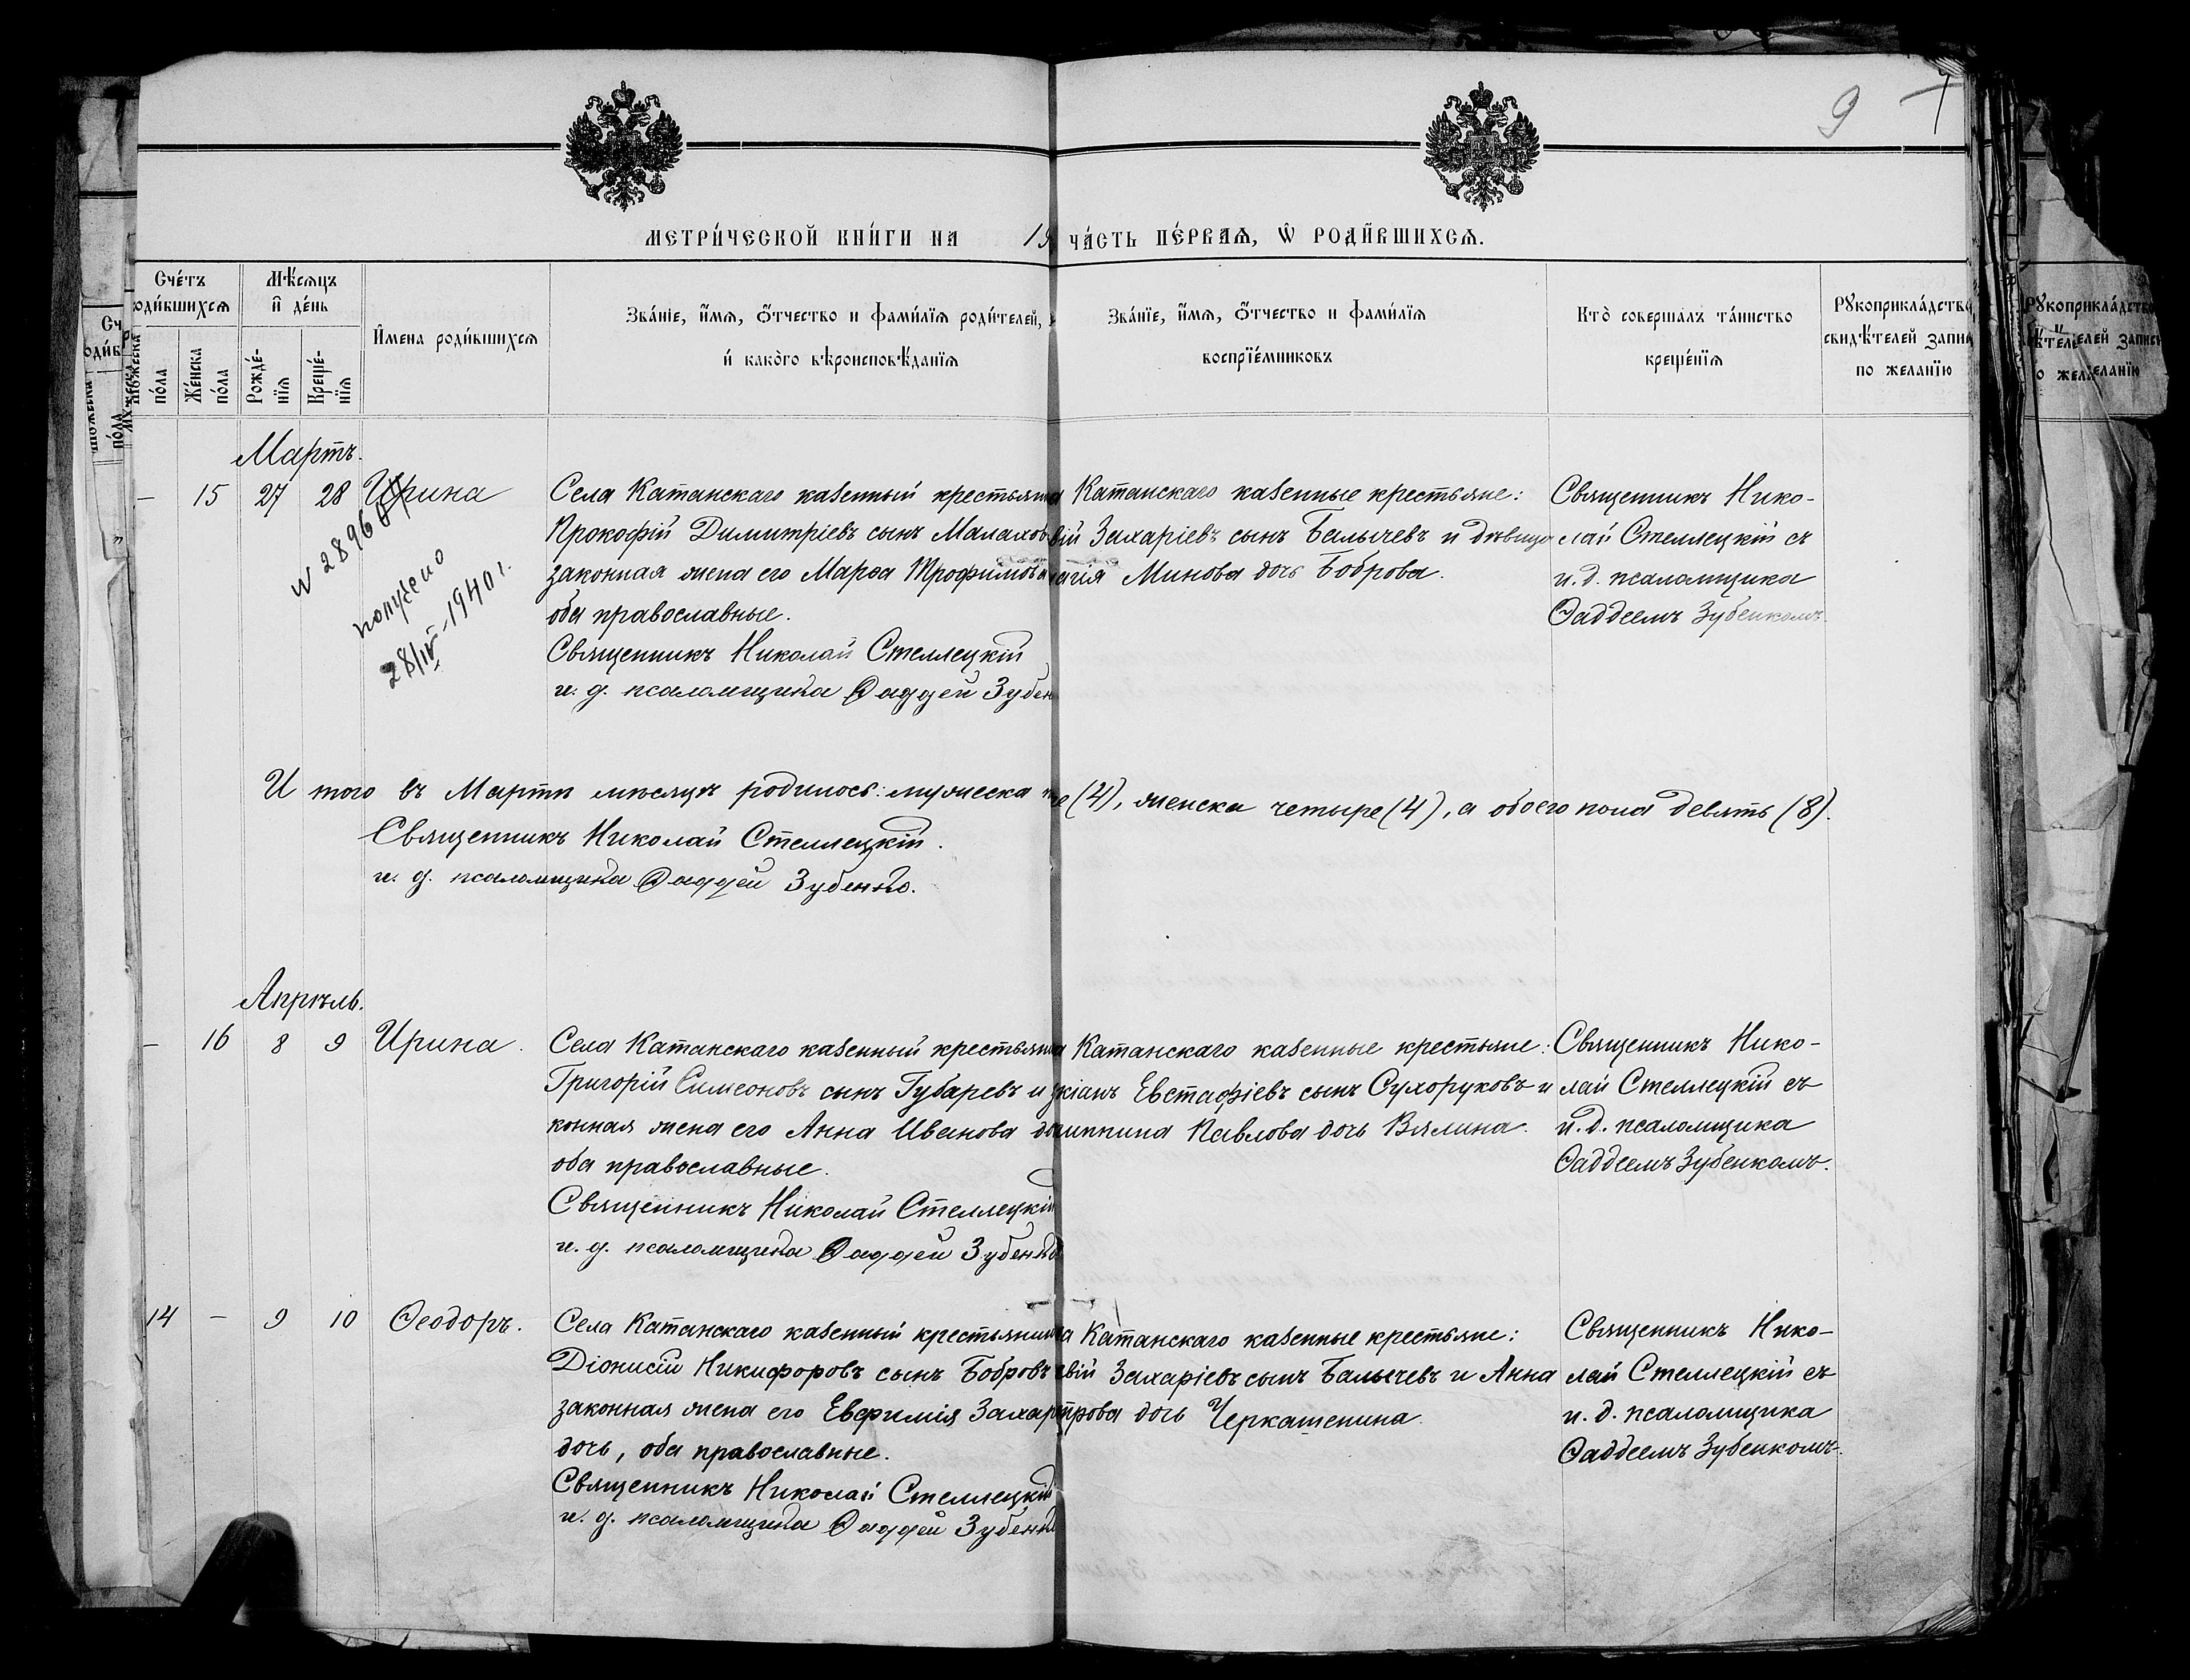 9
МЕТРИ́ЧЕСКОЙ КНИ́ГИ НА 19 ЧА́СТЬ ПЕ́РВАѦ, Ѡ РОДИ́ВШИХСѦ.
Сче́тъ
оди́вшихсѧ
Мѣ́сѧцъ
и҆ де́нь
И҆мена роди́вшихсѧ
Зва́нїе, и҆́мѧ, ѻ҆́тчество и фами́лїѧ роди́телей,
и҆ како́гѡ вѣроисповѣ́данїѧ
Зва́нїе, и҆́мѧ, ѻ҆́тчество и фами́лїѧ
воспрїе́мниковъ
Кто̀ соверша́лъ та́инство
креще́нїѧ
Рꙋкоприкла́дство
свидѣ́телей запи
по желанїю
по́ла
Же́нска
по́ла
Рожде́-
нїѧ
Креще́-
нїѧ
Мартъ.
— 15 27 28 Ирина
Села Катанскаго казенный крестьянин
Прокофій Димитріевъ сынъ Малахов
законная жена его Марѳа Трофимова
оба православные.
Священникъ Николай Стеллецкій
и. д. псаломщика Ѳаддей Зубен
Катанскаго казенные крестьяне:
вій Захаріевъ сынъ Балычевъ и дѣвица
агія Минова дочь Боброва.
Священникъ Нико-
лай Стеллецкій съ
и. д. псаломщика
Ѳаддеемъ Зубенкомъ.
получено
28/IV-1940 г.
И того въ Мартѣ мѣсяцѣ родилось: мужеска ре (4), женска четыре (4), а обоего пола девять (8).
Священникъ Николай Стеллецкій.
и. д. псаломщика Ѳаддей Зубенко.
Апрѣль.
— 16 8 9 Ирина.
Села Катанскаго казенный крестьянин
Григорій Симеоновъ сынъ Губаревъ и з
конная жена его Анна Иванова до
оба православные.
Священникъ Николай Стеллецкій
и. д. псаломщика Ѳаддей Зубенко
Катанскаго казенные крестьяне:
кіанъ Евстафіевъ сынъ Сухоруковъ и
Павлова дочь Вялина.
Священникъ Нико-
лай Стеллецкій съ
и. д. псаломщика
Ѳаддеемъ Зубенкомъ.
14 — 9 10 Ѳеодоръ.
Села Катанскаго казенный крестьянин
Діонисій Никифоровъ сынъ Бобровъ
законная жена его Евфимія Захар
дочь, оба православные.
Священникъ Николай Стеллецкій
и. д. псаломщика Ѳаддей Зубенко
Катанскаго казенные крестьяне:
вій Захаріевъ сынъ Балычевъ и Анна
трова дочь Черкашенина.
Священникъ Нико-
лай Стеллецкій съ
и. д. псаломщика
Ѳаддеемъ Зубенкомъ.